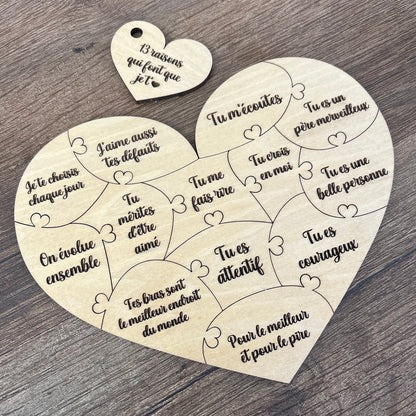 13 raisons
qui font que
je t'
Tu m'écoutes
Tu es un
père merveilleux
J'aime aussi
tes défauts
Je te choisis
chaque jour
Tu crois
en moi
Tu es une
belle personne
Tu me
fais rire
Tu
mérites
d'être
aimé
On évolue
ensemble
Tu es
attentif
Tu es
courageux
Tes bras sont
le meilleur endroit
du monde
Pour le meilleur
et pour le pire